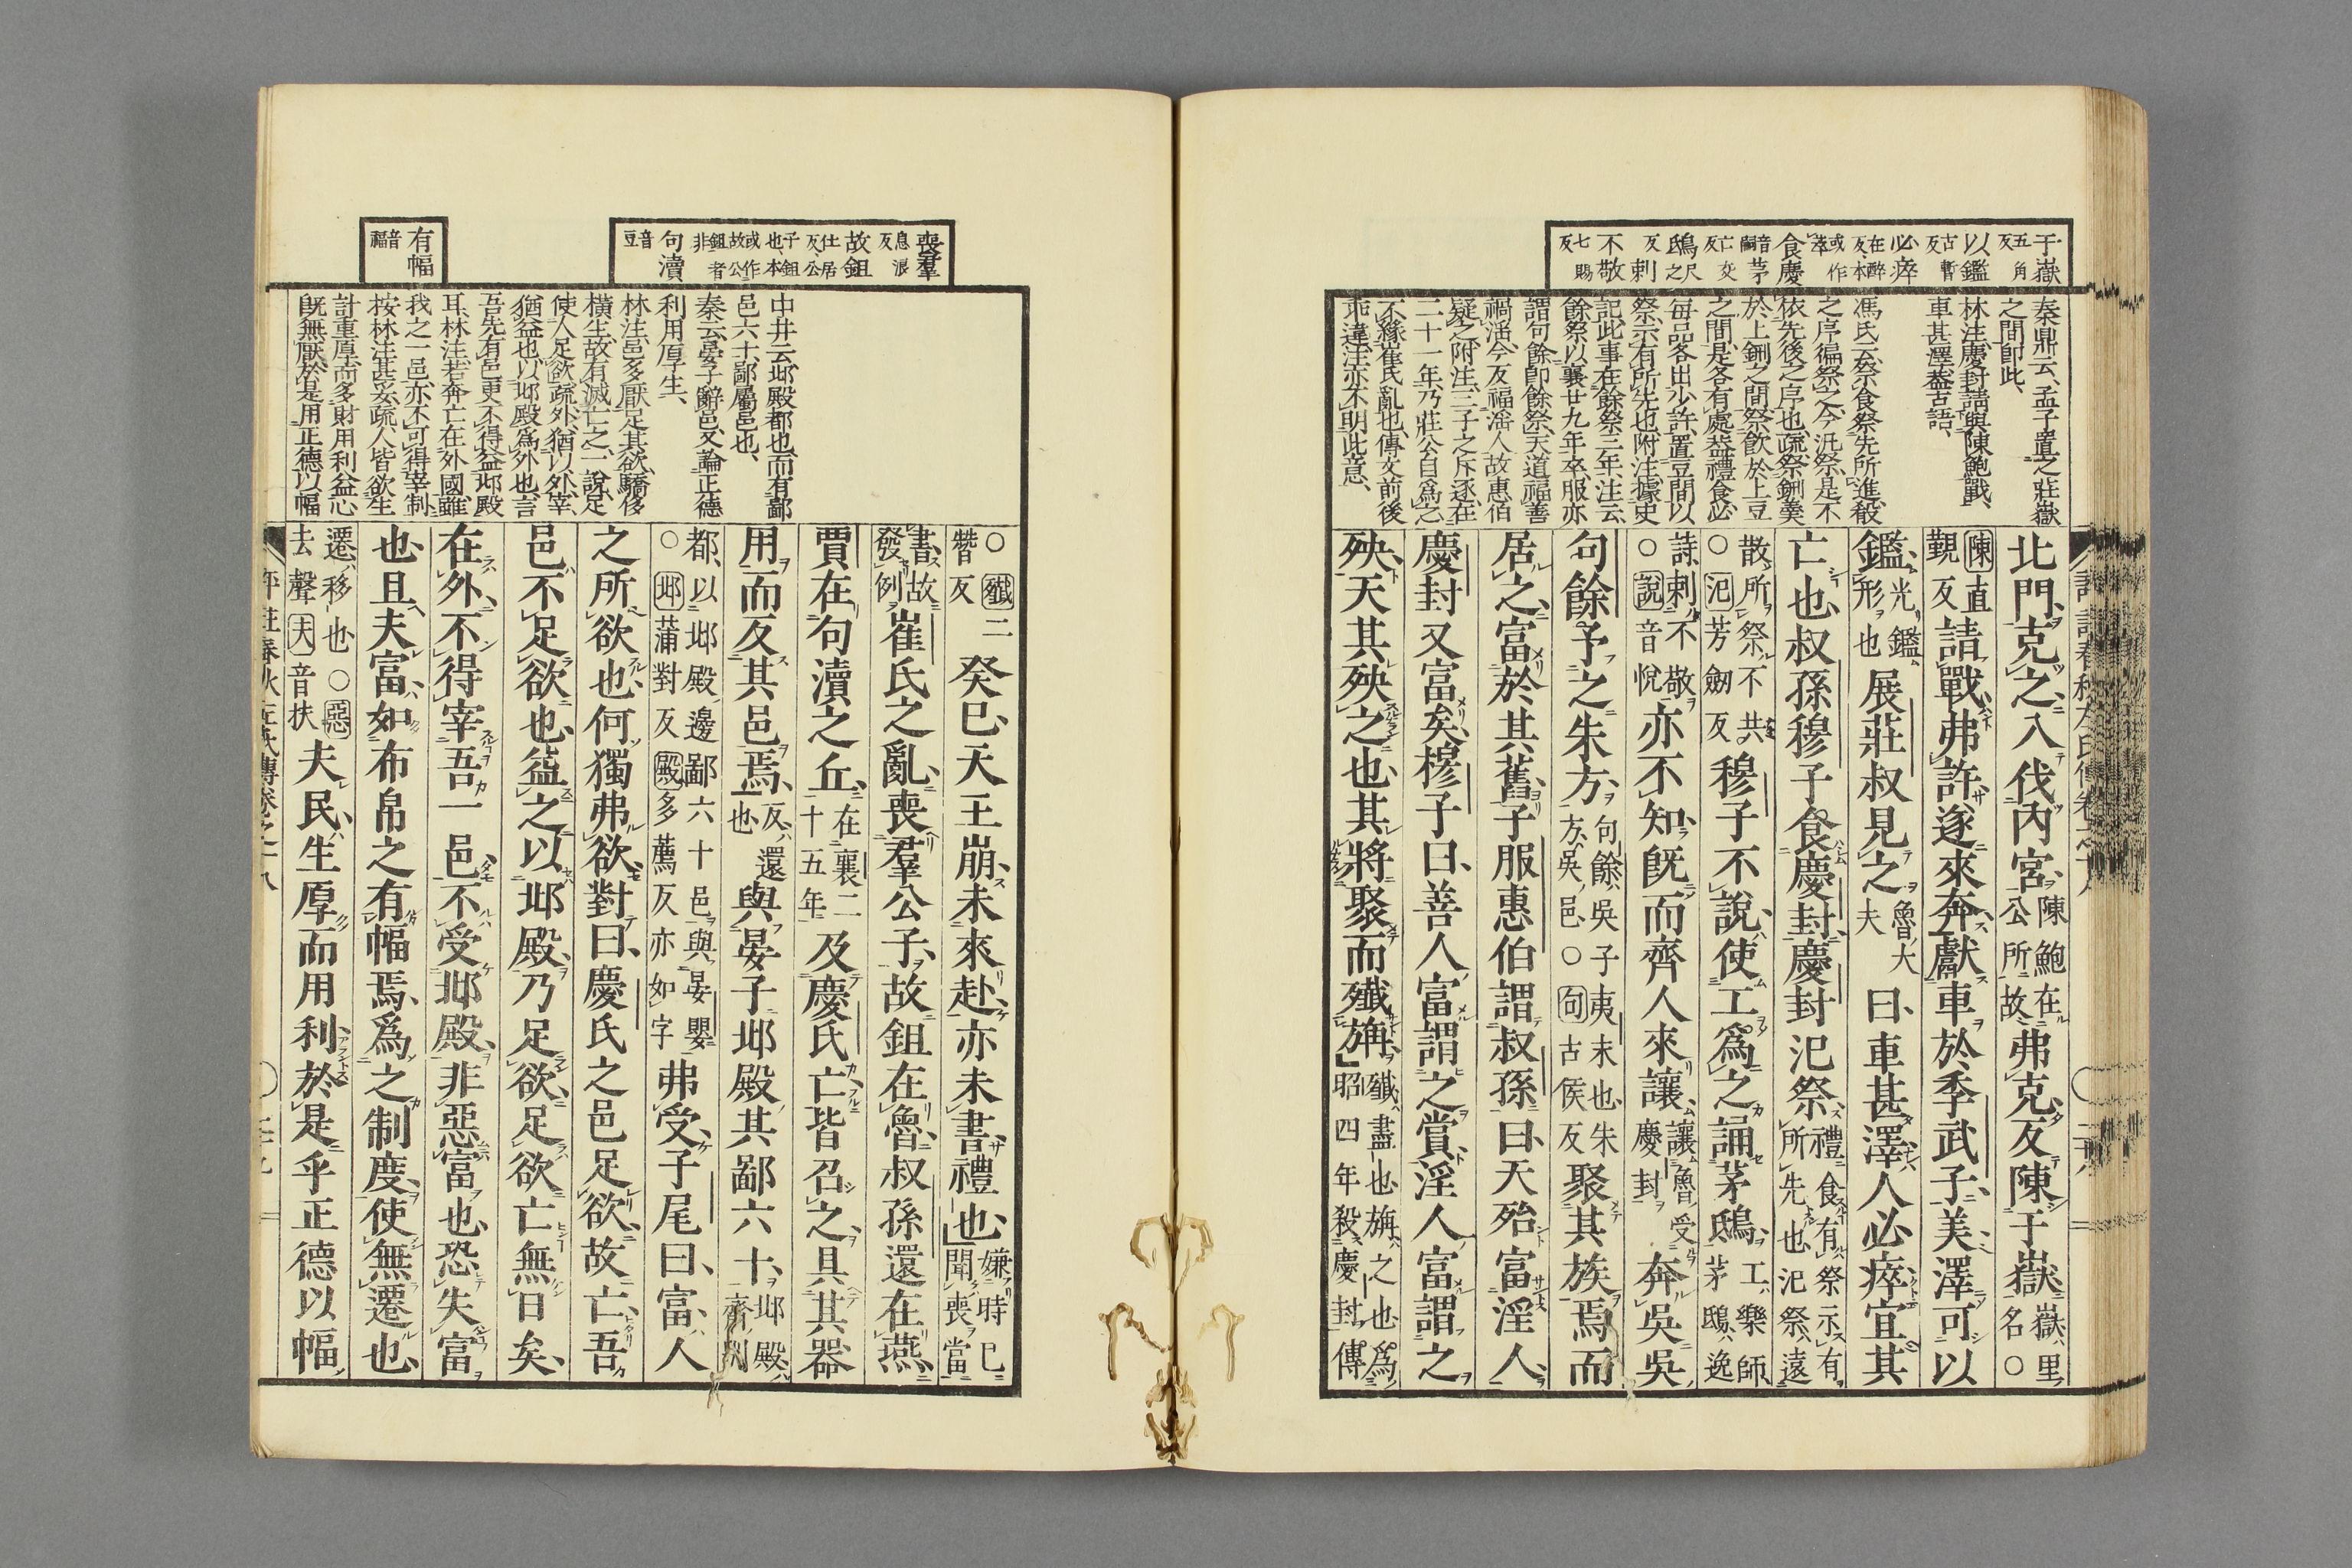 于嶽五角反
以鑑古暫反
必瘁在醉反本或作萃
食慶音嗣茅亡交反
鴟尺之反刺
不敬七賜反
秦鼎云、孟子置之莊嶽
之間即此、
林注慶封請與陳鮑戰、
車甚澤蓋古語、
馮氏云祭食祭先所進殽
之序徧祭之今氾祭是不
依先後之序也疏祭鉶羹
於上鉶之間祭飲於上豆
之間是各有處蓋禮食必
每品各出少許置豆間以
祭示有所先也附注據史
記此事在餘祭三年注云
餘祭以襄廿九年卒服亦
謂句餘即餘祭天道福善
禍淫今反福淫人故惠伯
疑之附注二子之斥逐在
二十一年乃莊公自爲之
不緣崔氏亂也傳文前後
乖違注亦不明此意、
北門克之入伐內宮陳鮑在公所故弗克反陳于嶽嶽里名○
陳直覲反請戰弗許遂來奔獻車於季武子美澤可以
鑑光鑑形也展莊叔見之魯大夫曰車甚澤人必瘁宜其
亡也叔孫穆子食慶封慶封氾祭禮食有祭示有所先也氾祭遠
散所祭不共○氾芳劒反穆子不說使工爲之誦茅鴟工樂師茅鴟逸
詩刺不敬○說音悅亦不知既而齊人來讓讓魯受慶封奔吳吳
句餘予之朱方句餘吳子夷末也朱方吳邑○句古侯反聚其族焉而
居之富於其舊子服惠伯謂叔孫曰天殆富淫人
慶封又富矣穆子曰善人富謂之賞淫人富謂之
殃天其殃之也其將聚而殲旃殲盡也旃之也爲昭四年殺慶封傳
喪羣息浪反
故鉏仕居反公子鉏也本或作故公鉏者非
句瀆音豆
有幅音福
中井云邶殿都也而有鄙
邑六十鄙屬邑也、
秦云晏子辭邑又論正德
利用厚生、
林注邑多厭足其欲驕侈
橫生故有滅亡之一說足
使人足欲疏外猶以外宰
猶益也以邶殿爲外也言
吾先有邑更不得益邶殿
耳林注若奔亡在外國雖
我之一邑亦不可得宰制
按林注甚妥疏人皆欲生
計重厚而多財用利益心
旣無厭於是用正德以幅
○殲二㬱反癸巳天王崩未來赴亦未書禮也嫌時已聞喪當
書故發例崔氏之亂喪羣公子故鉏在魯叔孫還在燕
賈在句瀆之丘在襄二十五年及慶氏亡皆召之具其器
用而反其邑焉反還也與晏子邶殿其鄙六十邶殿齊別
都以邶殿邊鄙六十邑與晏嬰○邶蒲對反殿多薦反亦如字弗受子尾曰富人
之所欲也何獨弗欲對曰慶氏之邑足欲故亡吾
邑不足欲也益之以邶殿乃足欲足欲亡無日矣
在外不得宰吾一邑不受邶殿非惡富也恐失富
也且夫富如布帛之有幅焉爲之制度使無遷也
遷移也○惡去聲夫音扶夫民生厚而用利於是乎正德以幅